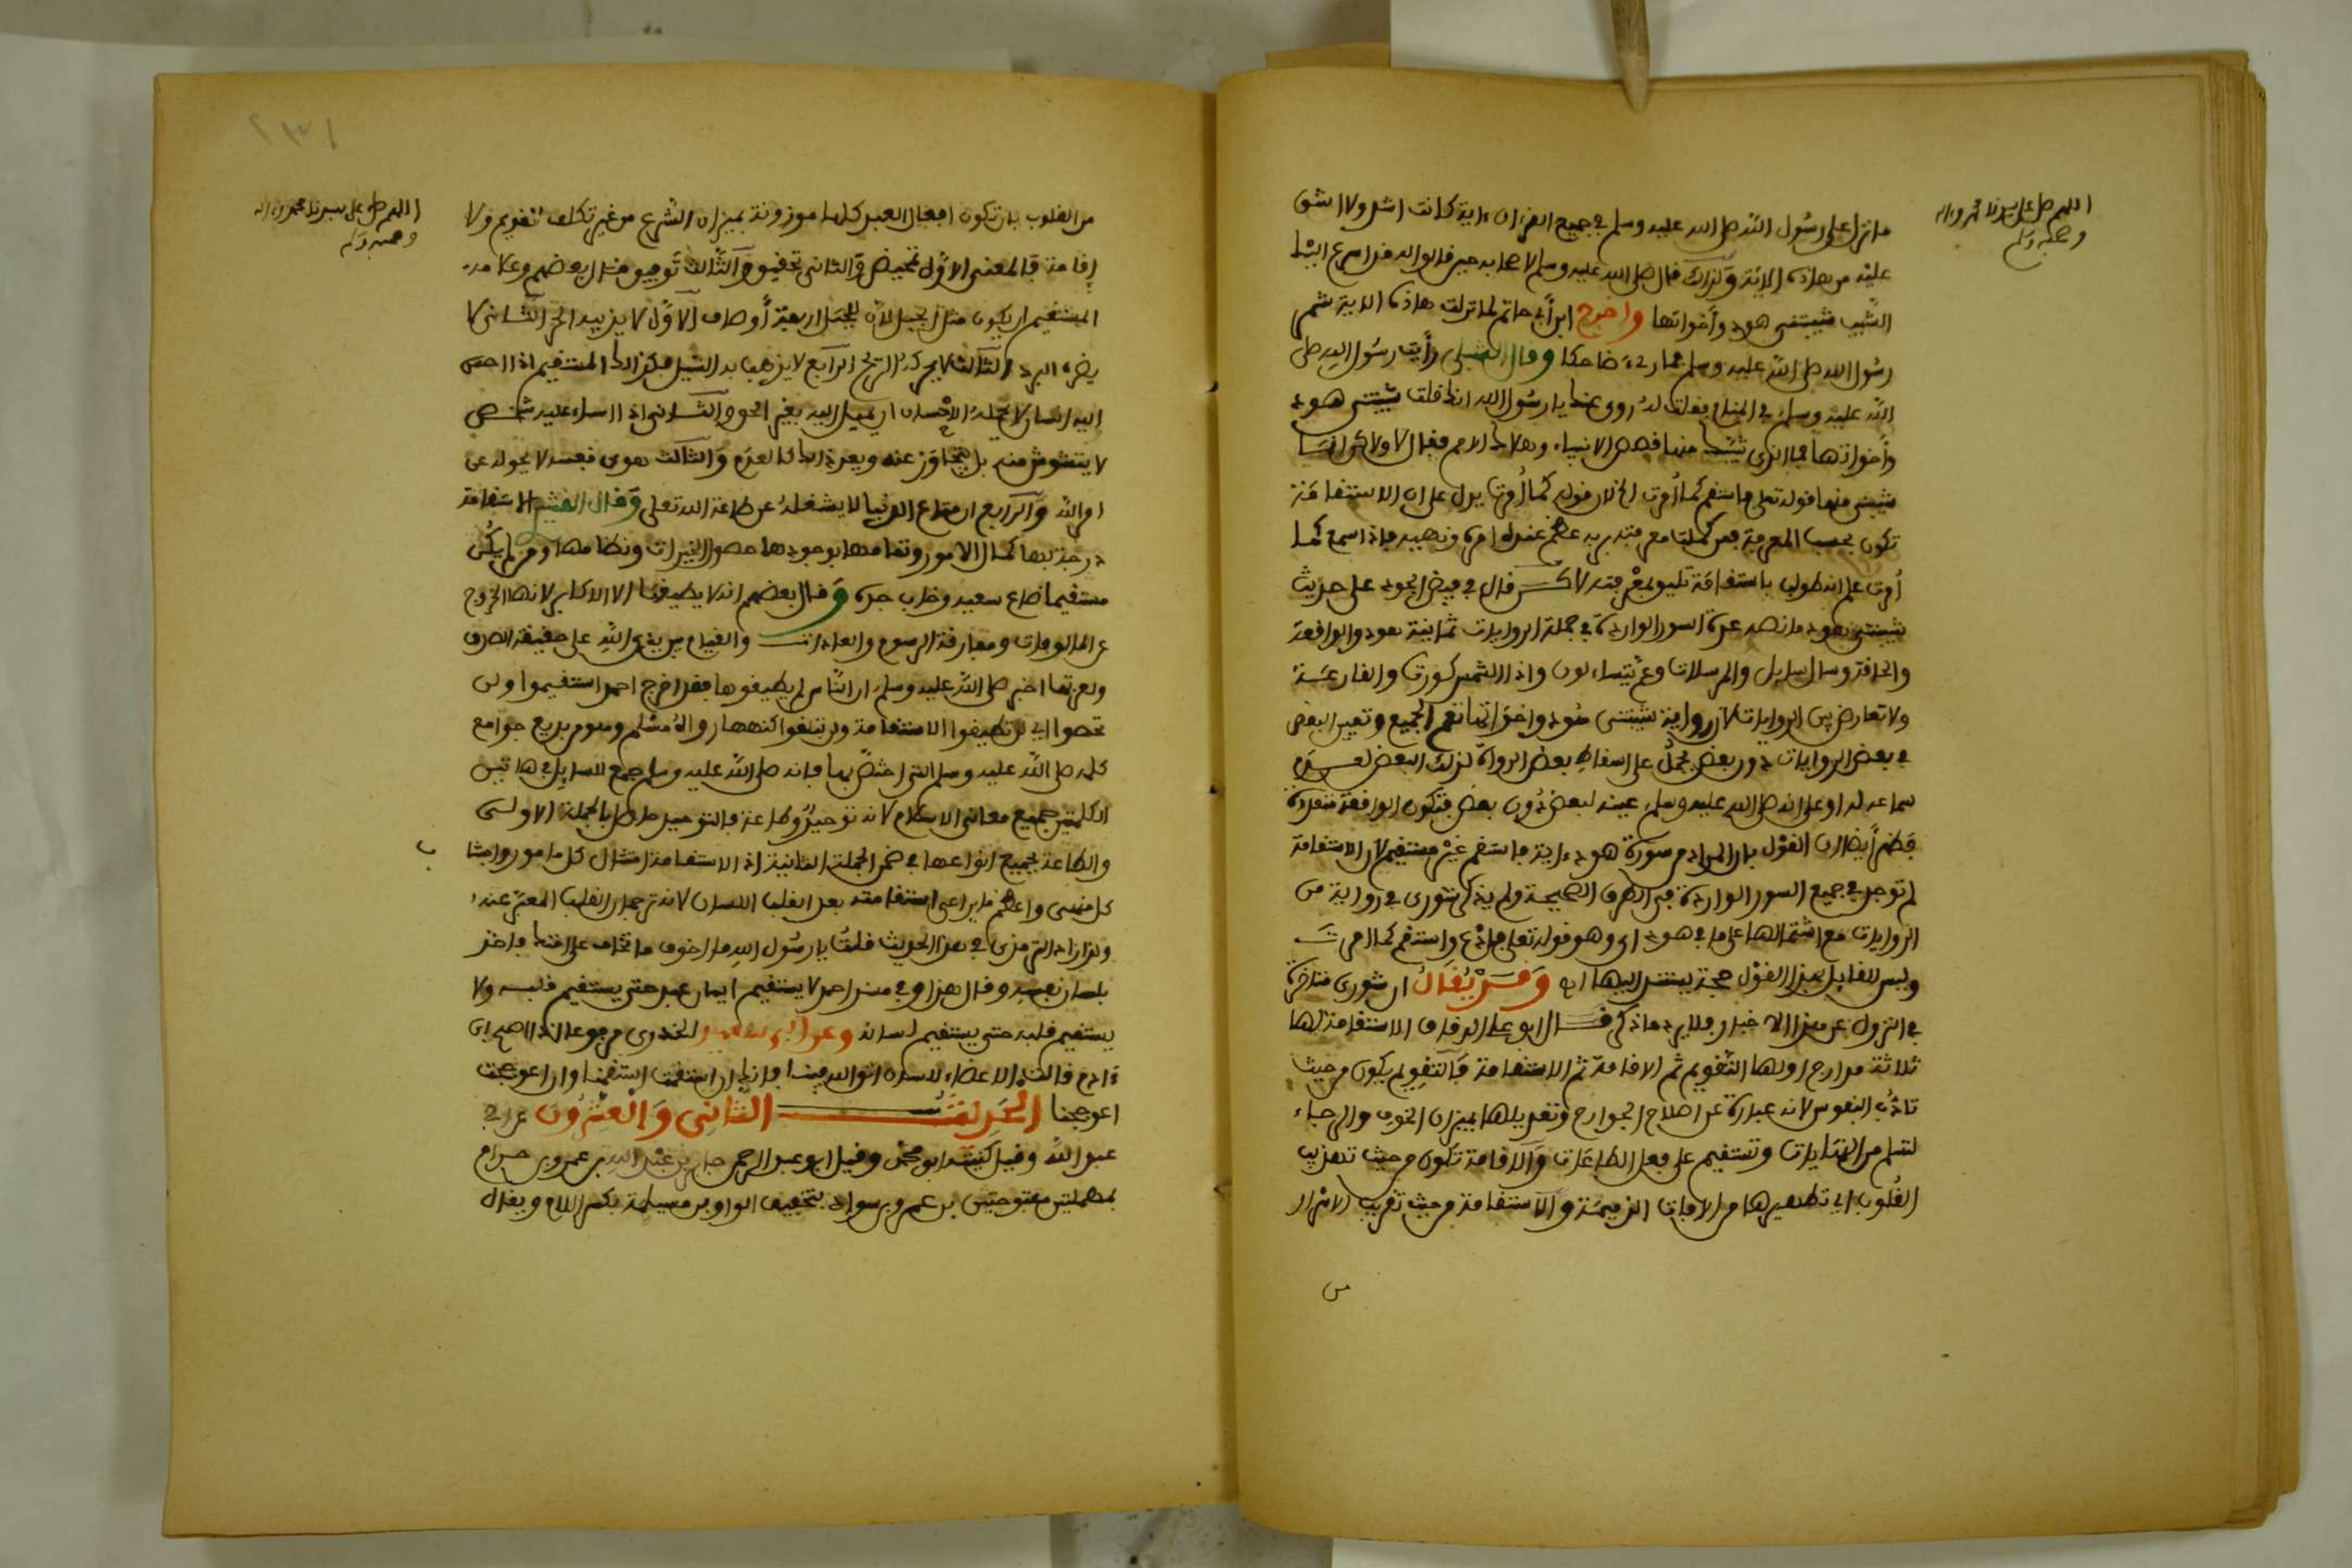 اللهم صل على سيدنا محمد وءاله
وصحبه وسلم
ما نزل على رسول الله صلى الله عليه وسلم في جميع القرءان ءاية كانت اشد ولا اشق
عليه من هاذه الاية ولذلك قال صلى الله عليه وسلم لاصحابه حين قالوا له قد اسرع اليك
الشيب شيبتني هود وأخواتها واخرج ابن أبي حاتم لما نزلت هاذه الاية شمر
رسول الله صلى الله عليه وسلم فما رءي ضاحكا وقال الشبلي رأيت رسول الله صلى
الله عليه وسلم في المنام فقلت له روي عنك يا رسول الله انك قلت شيبتني هود
وأخواتها فما الذي شيبك منها قصص الانبياء وهلاك الامم فقال لا ولاكن
شيبني منها قوله تعلى فاستقم كما أمرت قوله كما أمرت يدل على ان الاستقامة
تكون بحسب المعرفة فمن كملت معرفته بربه عظم عنده امره ونهيه فاذا سمع كما
أمرت علم انه طولب باستقامة تليق بمعرفته قال في فيض الجود على حديث
شيبتني هود ما نصه عدة السور الواردة في جملة الروايات ثمانية هود والواقعة
والحاقة وسال سايل والمرسلات وعم يتساءلون واذا الشمس كورت والقارعة
ولا تعارض بين الروايات لان رواية شيبتني هود واخواتها تعم الجميع وتعيين البعض
في بعض الروايات دون بعض يحمل على اسقاط بعض الرواة لذلك البعض لعدم
سماعه له او على انه صلى الله عليه وسلم عينه لبعض دون بعض فتكون الواقعة متعددة
فظهر أيضا ان القول بان المراد من سورة هود ءاية فاستقم غير مستقيم لان الاستقامة
لم توجد في جميع السور الواردة في الطرق الصحيحة ولم يذكر شورى في رواية من
الروايات مع اشتمالها على ما في هود اي وهو قوله تعلى فادع واستقم كما امرت
وليس للقايل بهذا القول حجة يستند اليها اه وقد يقال ان شورى متاخرة
في النزول عن هذا الاخبار فلا يرد ما ذكر قال ابو علي الدقاق الاستقامة لها
ثلاثة مدارج اولها التقويم ثم الاقامة ثم الاستقامة فالتقويم يكون من حيث
تاديب النفوس لانه عبارة عن اصلاح الجوارح وتعديلها بميزان الخوف والرجاء
لتسلم من الجنايات وتستقيم على فعل الطاعات والاقامة تكون من حيث تهذيب
القلوب اي تطهيرها من الافات الذميمة والاستقامة من حيث تقريب الاسرار
من
اللهم صل على سيدنا محمد وءاله
وصحبه وسلم
من القلوب بان تكون افعال العبد كلها موزونة بميزان الشرع من غير تكلف تقويم ولا
إقامة فالمعنى الاول تمحيض والثاني تحقيق والثالث توفيق قال بعضهم وعلامة
المستقيم ان يكون مثل الجبل لان للجبل اربعة أوصاف الاول لا يذيبه الحر الثاني لا
يضره البرد الثالث لا يحركه الريح الرابع لا يذهب به السيل فكذالك المستقيم اذا احسن
اليه انسان لا يحمله الاحسان ان يميل اليه بغير الحق والثاني اذا اساء عليه شخص
لا يتشوش منه بل يتجاوز عنه ويعد ذالك كالعدم والثالث هوى نفسه لا يحوله عن
امر الله والرابع ان متاع الدنيا لا يشغله عن طاعة الله تعلى وقال القشيري الاستقامة
درجة بها كمال الامور وتمامها بوجودها حصول الخيرات ونظامها ومن لم يكن
مستقيما ضاع سعيه وخاب جده وقال بعضهم انه لا يطيقها الا الاكابر لانها الخروج
عن المالوفات ومفارقة الرسوم والعادات والقيام بين يدي الله على حقيقة الصدق
ولعزتها اخبر صلى الله عليه وسلم ان الناس لم يطيقوها فقد اخرج احمد استقيموا ولن
تحصوا اي لن تطيقوا الاستقامة ولن تبلغوا كنهها رواه مسلم وهو من بديع جوامع
كلمه صلى الله عليه وسلم التي اختص بها فانه صلى الله عليه وسلم جمع للسايل في هاتين
الكلمتين جميع معاني الاسلام لانه توحيد وطاعة فالتوحيد حاصل بالجملة الاولى
والطاعة بجميع انواعها في ضمن الجملة الثانية اذ الاستقامة امتثال كل مامور واجتناب
كل منهي واعظم ما يراعى استقامته بعد القلب اللسان لانه ترجمان القلب المعبر عنه
ولذا زاد الترمذي في هذا الحديث قلت يا رسول الله ما اخوف ما تخاف علي فاخذ
بلسان نفسه وقال هذا وفي مسند احمد لا يستقيم ايمان عبد حتى يستقيم قلبه ولا
يستقيم قلبه حتى يستقيم لسانه وعن ابي سعيد الخدري مرفوعا اذا اصبح ابن
ءادم قالت الاعضاء للسان اتق الله فينا فانك ان استقمت استقمنا وان اعوججت
اعوججنا الحديث الثاني والعشرون عن ابي
عبد الله وقيل كنيته ابو محمد وقيل ابو عبد الرحمن جابر بن عبد الله بن عمرو بن حرام
بمهملتين مفتوحتين بن عمرو بن سواد بتخفيف الواو بن مسيلمة بكسر اللام ويقال